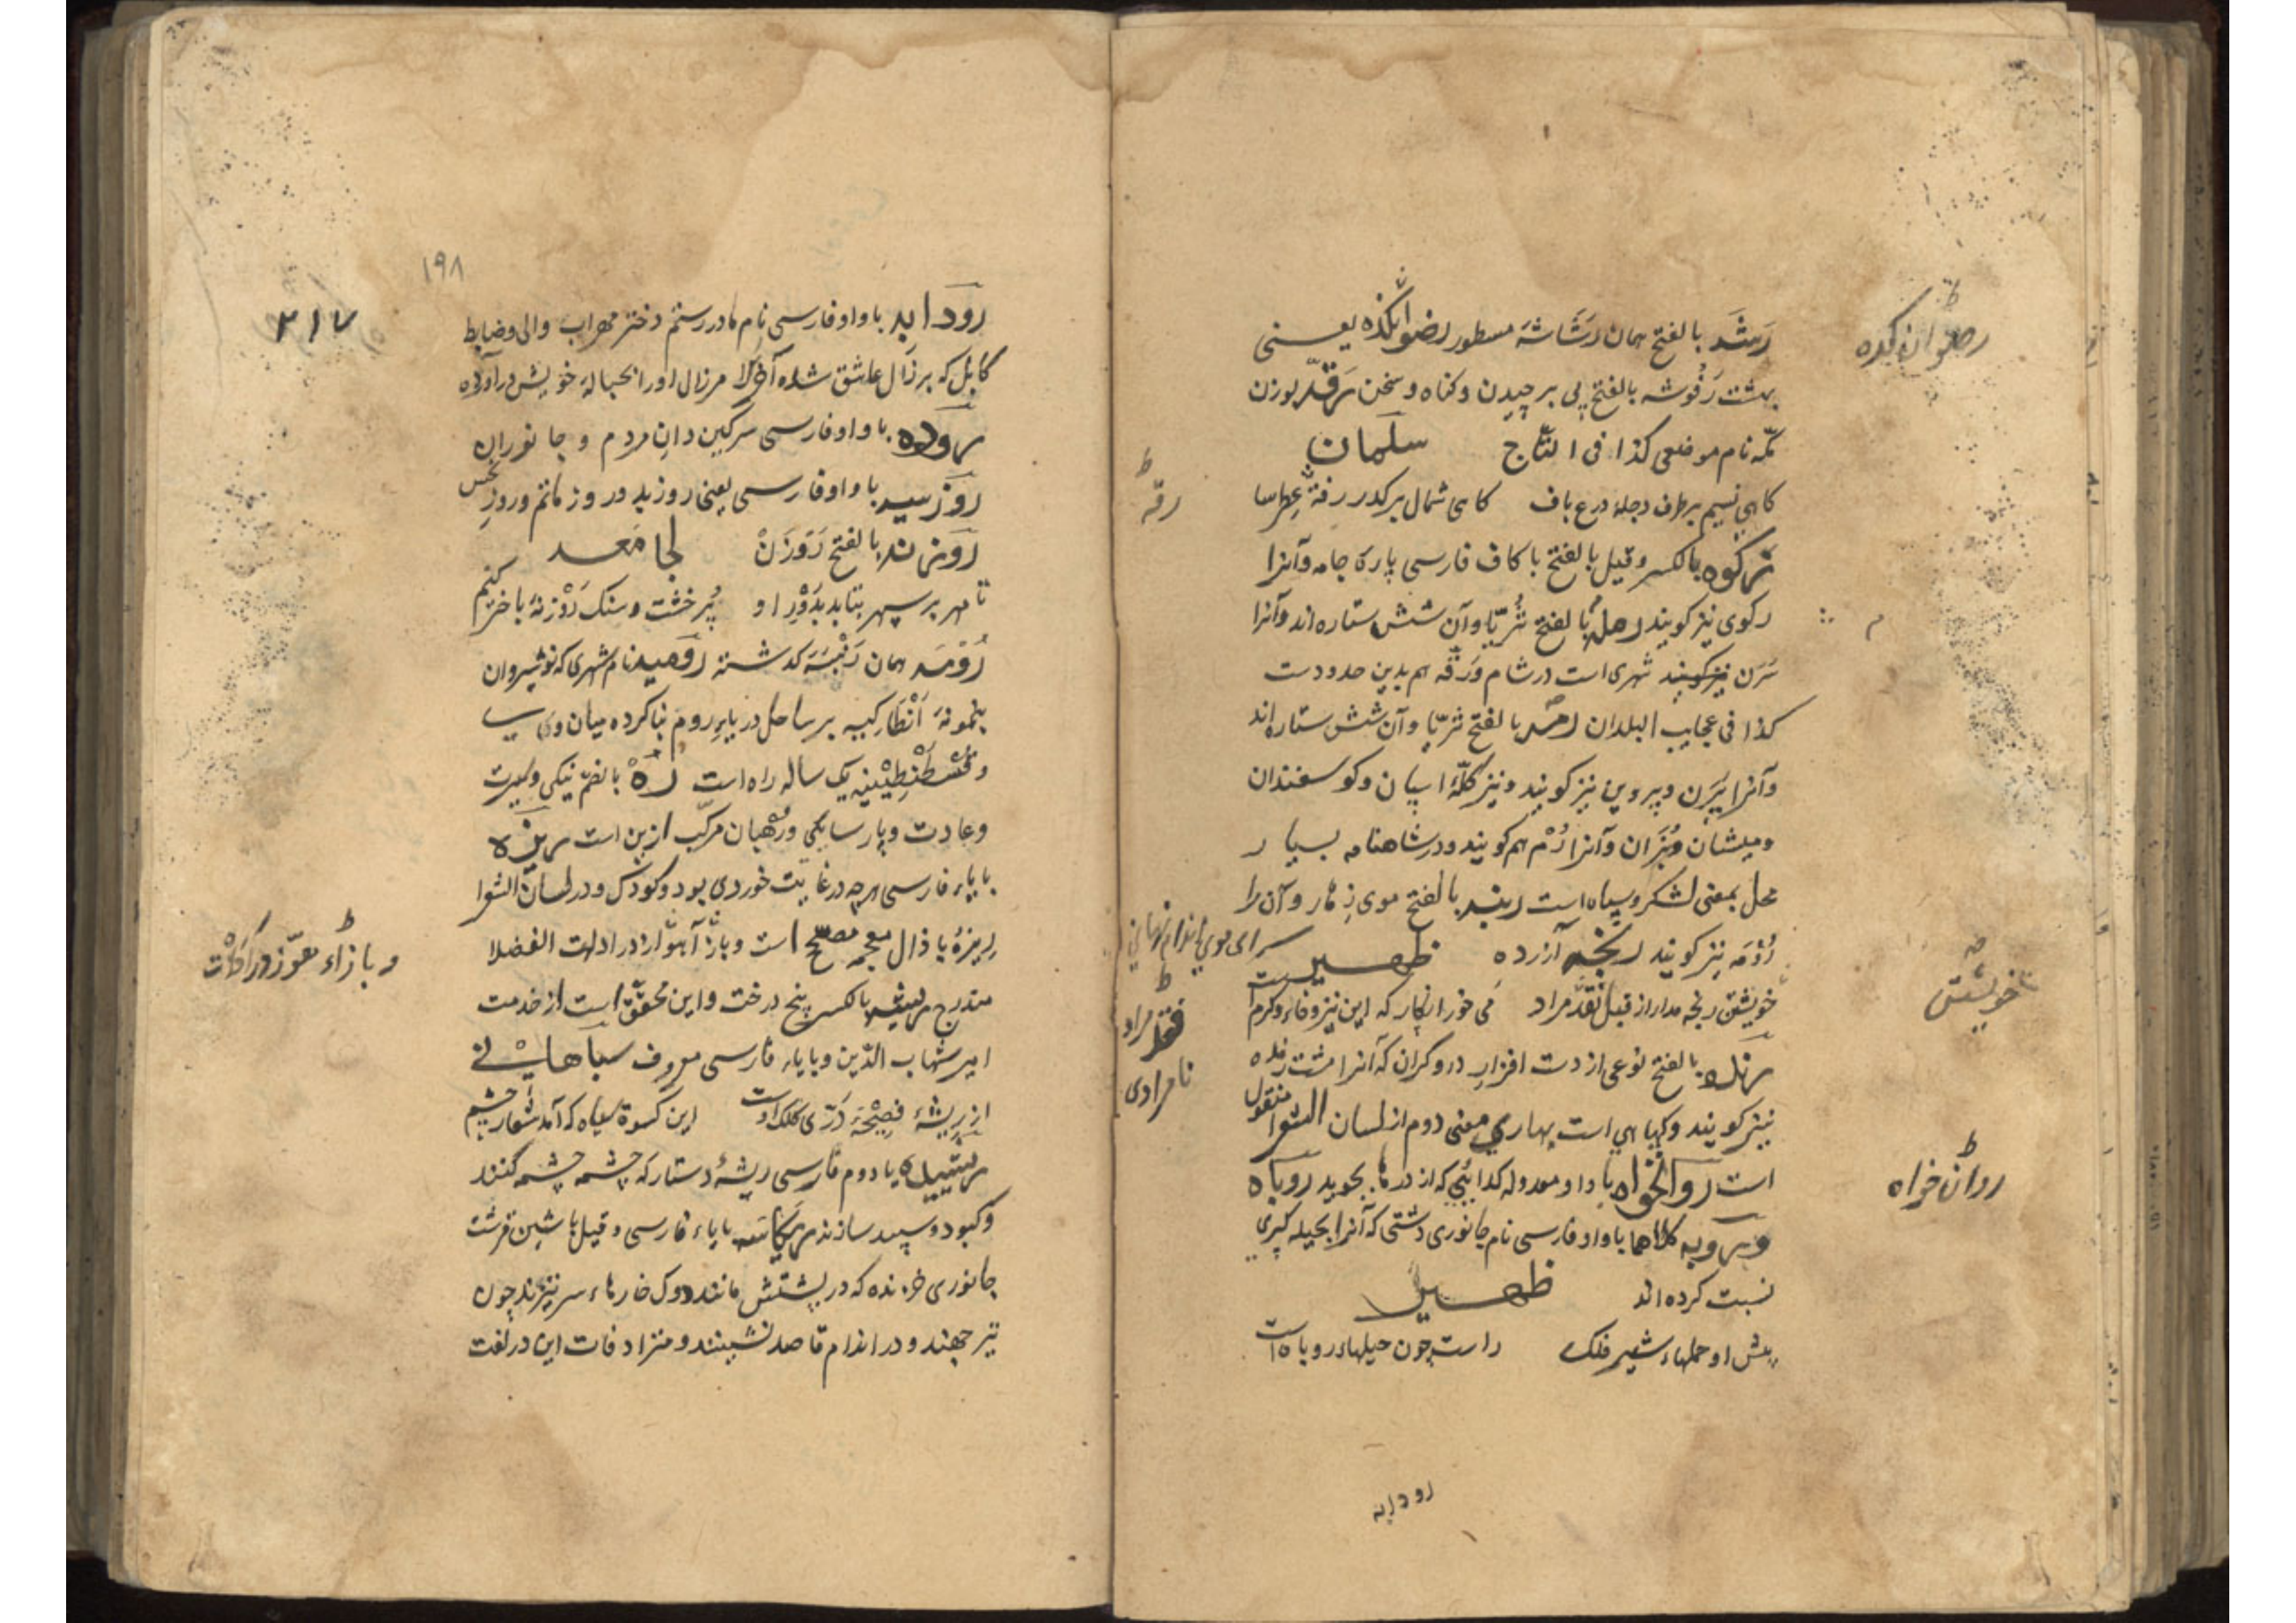 رَشَد بالفتح همان رَشَاشَهٔ مسطور رضوانکده یعنی
بهشت رَفُوشه بالفتح پی برچیدن و کناه و سخن رقّه بوزن
مکّه نام موضعی کذا فی التّاج سلمان
کاهی نسیم برطرف دجله درع باف کاهی شمال برکدر رقّه عطرسا
رکوه بالکسر و قیل بالفتح با کاف فارسی پارهٔ جامه و آنرا
رکوی نیز کویند رمله بالفتح ثریّا و آن شش ستاره اند و آنرا
نیز کویند شهری است در شام و رقّه هم بدین حدودست
کذا فی عجایب البلدان رمه بالفتح ثریّا و آن شش ستاره اند
و آنرا پَرَن و پروین نیز کویند و نیز کلّهٔ اسپان و کوسفندان
و میشان و بُزان و آنرا رَم هم کویند و در شاهنامه بسیار
محل بمعنی لشکر و سپاه است رنبه بالفتح موی زهار و آن را
رُومَه نیز کویند رنجه آزرده ظهیر
خویشتن رنجه مدار از قبل نقد مراد می خور انکار که این نیز وفا و کرم است
رنده بالفتح نوعی از دست افزار دروکران که آنرا مشت رنده
نیز کویند و کیاهی است بهاری معنی دوم از لسان الشعرا منقول
است روانخواه با واو معدوله کدائی که از درها بجوید روباه
و روبه کلاهما با واو فارسی نام جانوری دشتی که آنرا بحیله کری
نسبت کرده اند ظهیر
پیش او حملهاء شیر فلک راست چون حیلهاء روباه است
رودابه
رضوان کده
رقّه
م
سرای موی اندام نهانی
خویشتن
فقد مراد
نامرادی
روان خواه
۱۹۸
۲۱۷
رودابه با واو فارسی نام مادر رستم دختر مهراب والی و ضابط
کابل که بر زال عاشق شده آخرالامر زال اورا بحبالهٔ خویش درآورده
روده با واو فارسی سرکین دان مردم و جانوران
روز سیه با واو فارسی یعنی روز بد و روز ماتم و روز نحس
روزنه بالفتح رَوْزَنْ لجامعه
تا مهر بر سپهر بتابد بدَوْرِ او پُر خشت و سنک رَوْزنهٔ باختر کنیم
رُومَه همان رَنْبَه کدشته رومیه نام شهری که نوشیروان
بنمونهٔ اَنْطَاکیه بر ساحل دریای روم بنا کرده میان وی
و قُسْطَنْطِیْنیه یک ساله راه است رُهْ بالضمّ نیکی و سیرت
و عادت و پارسایگی و رُهْبان مرکّب ازین است ریزه
با یاء فارسی هرچه در غایت خوردی بود و کودک و در لسان الشعرا
ریزهٔ با ذال معجمه مصحّح است و در ادات الفضلا
مندرج ریشه بالکسر بیخ درخت و این محقّق است از خدمت
امیر شهاب الدّین و با یاء فارسی معروف سپاهانی
از ریشهٔ این کسوة سیاه که آمد شعار چشم
با دوم فارسی ریشهٔ دستار که چشمه چشمه کنند
و کبود و سپید سازند ریکاسه با یاء فارسی و قیل با شین قرشت
جانوری خزنده که در پشتش مانند دوک خارهاء سرتیزند چون
تیر جهند و در اندام قاصد نشینند و مترادفات این در لغت
و با زاء معوّز در ادات